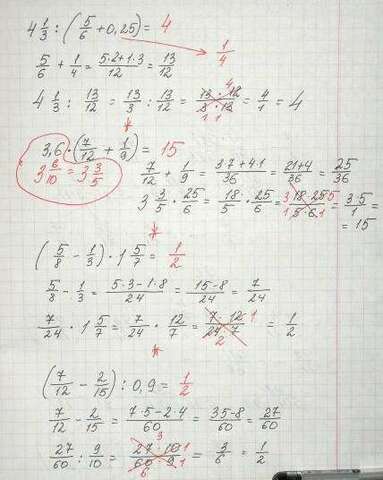 4 1/3 : (5/6 + 0,25) = 4
1/4
5/6 + 1/4 = 5·2+1·3/12 = 13/12
4 1/3 : 13/12 = 13/3 : 13/12 = 13·12/3·13 = 4/1 = 4
*
3,6 · (7/12 + 1/9) = 15
3 6/10 = 3 3/5
7/12 + 1/9 = 3·7+4·1/36 = 21+4/36 = 25/36
3 3/5 · 25/6 = 18/5 · 25/6 = 18·25/5·6 = 3·5/1 =
= 15
*
(5/8 - 1/3) · 1 5/7 = 1/2
5/8 - 1/3 = 5·3-1·8/24 = 15-8/24 = 7/24
7/24 · 1 5/7 = 7/24 · 12/7 = 7·12/24·7 = 1/2
*
(7/12 - 2/15) : 0,9 = 1/2
7/12 - 2/15 = 7·5-2·4/60 = 35-8/60 = 27/60
27/60 : 9/10 = 27·10/60·9 = 3/6 = 1/2